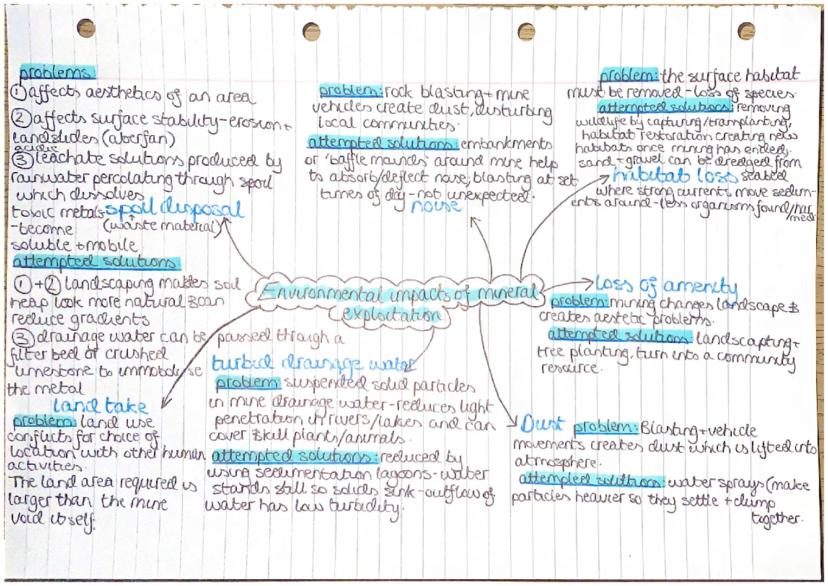 Environmental impacts of mineral
exploitation
problems
① affects aesthetics of an area
② affects surface stability - erosion +
landslides (aberfan)
acidic
③ leachate solutions produced by
rainwater percolating through spoil
which dissolves
toxic metals
- become
soluble + mobile
spoil disposal
(waste material)
attempted solutions
① + ② landscaping makes soil
heap look more natural & can
reduce gradients
③ drainage water can be passed through a
filter bed of crushed
limestone to immobilise
the metal
problem: rock blasting + mine
vehicles create dust, disturbing
local communities.
attempted solutions: embankments
or 'baffle mounds' around mine help
to absorb/deflect noise; blasting at set
times of day - not unexpected.
noise
problem: the surface habitat
must be removed - loss of species
attempted solutions: removing
wildlife by capturing/transplanting,
habitat restoration creating new
habitats once mining has ended.
sand + gravel can be dredged from
seabed
habitat loss
where strong currents move sedim-
ents around - less organisms found/
loss of amenity
problem: mining changes landscape &
creates aestetic problems.
attempted solutions: landscaping +
tree planting, turn into a community
resource.
land take
problem: land use
conflicts for choice of
location with other human
activities.
The land area required is
larger than the mine
void itself.
turbid drainage water
problem: suspended solid particles
in mine drainage water - reduces light
penetration in rivers/lakes and can
cover & kill plants/animals.
attempted solutions: reduced by
using sedimentation lagoons - water
stands still so solids sink - outflow of
water has low turbidity.
Dust problem: Blasting + vehicle
movements creates dust which is lifted into
atmosphere.
attempted solutions: water sprays (make
particles heavier so they settle + clump
together.